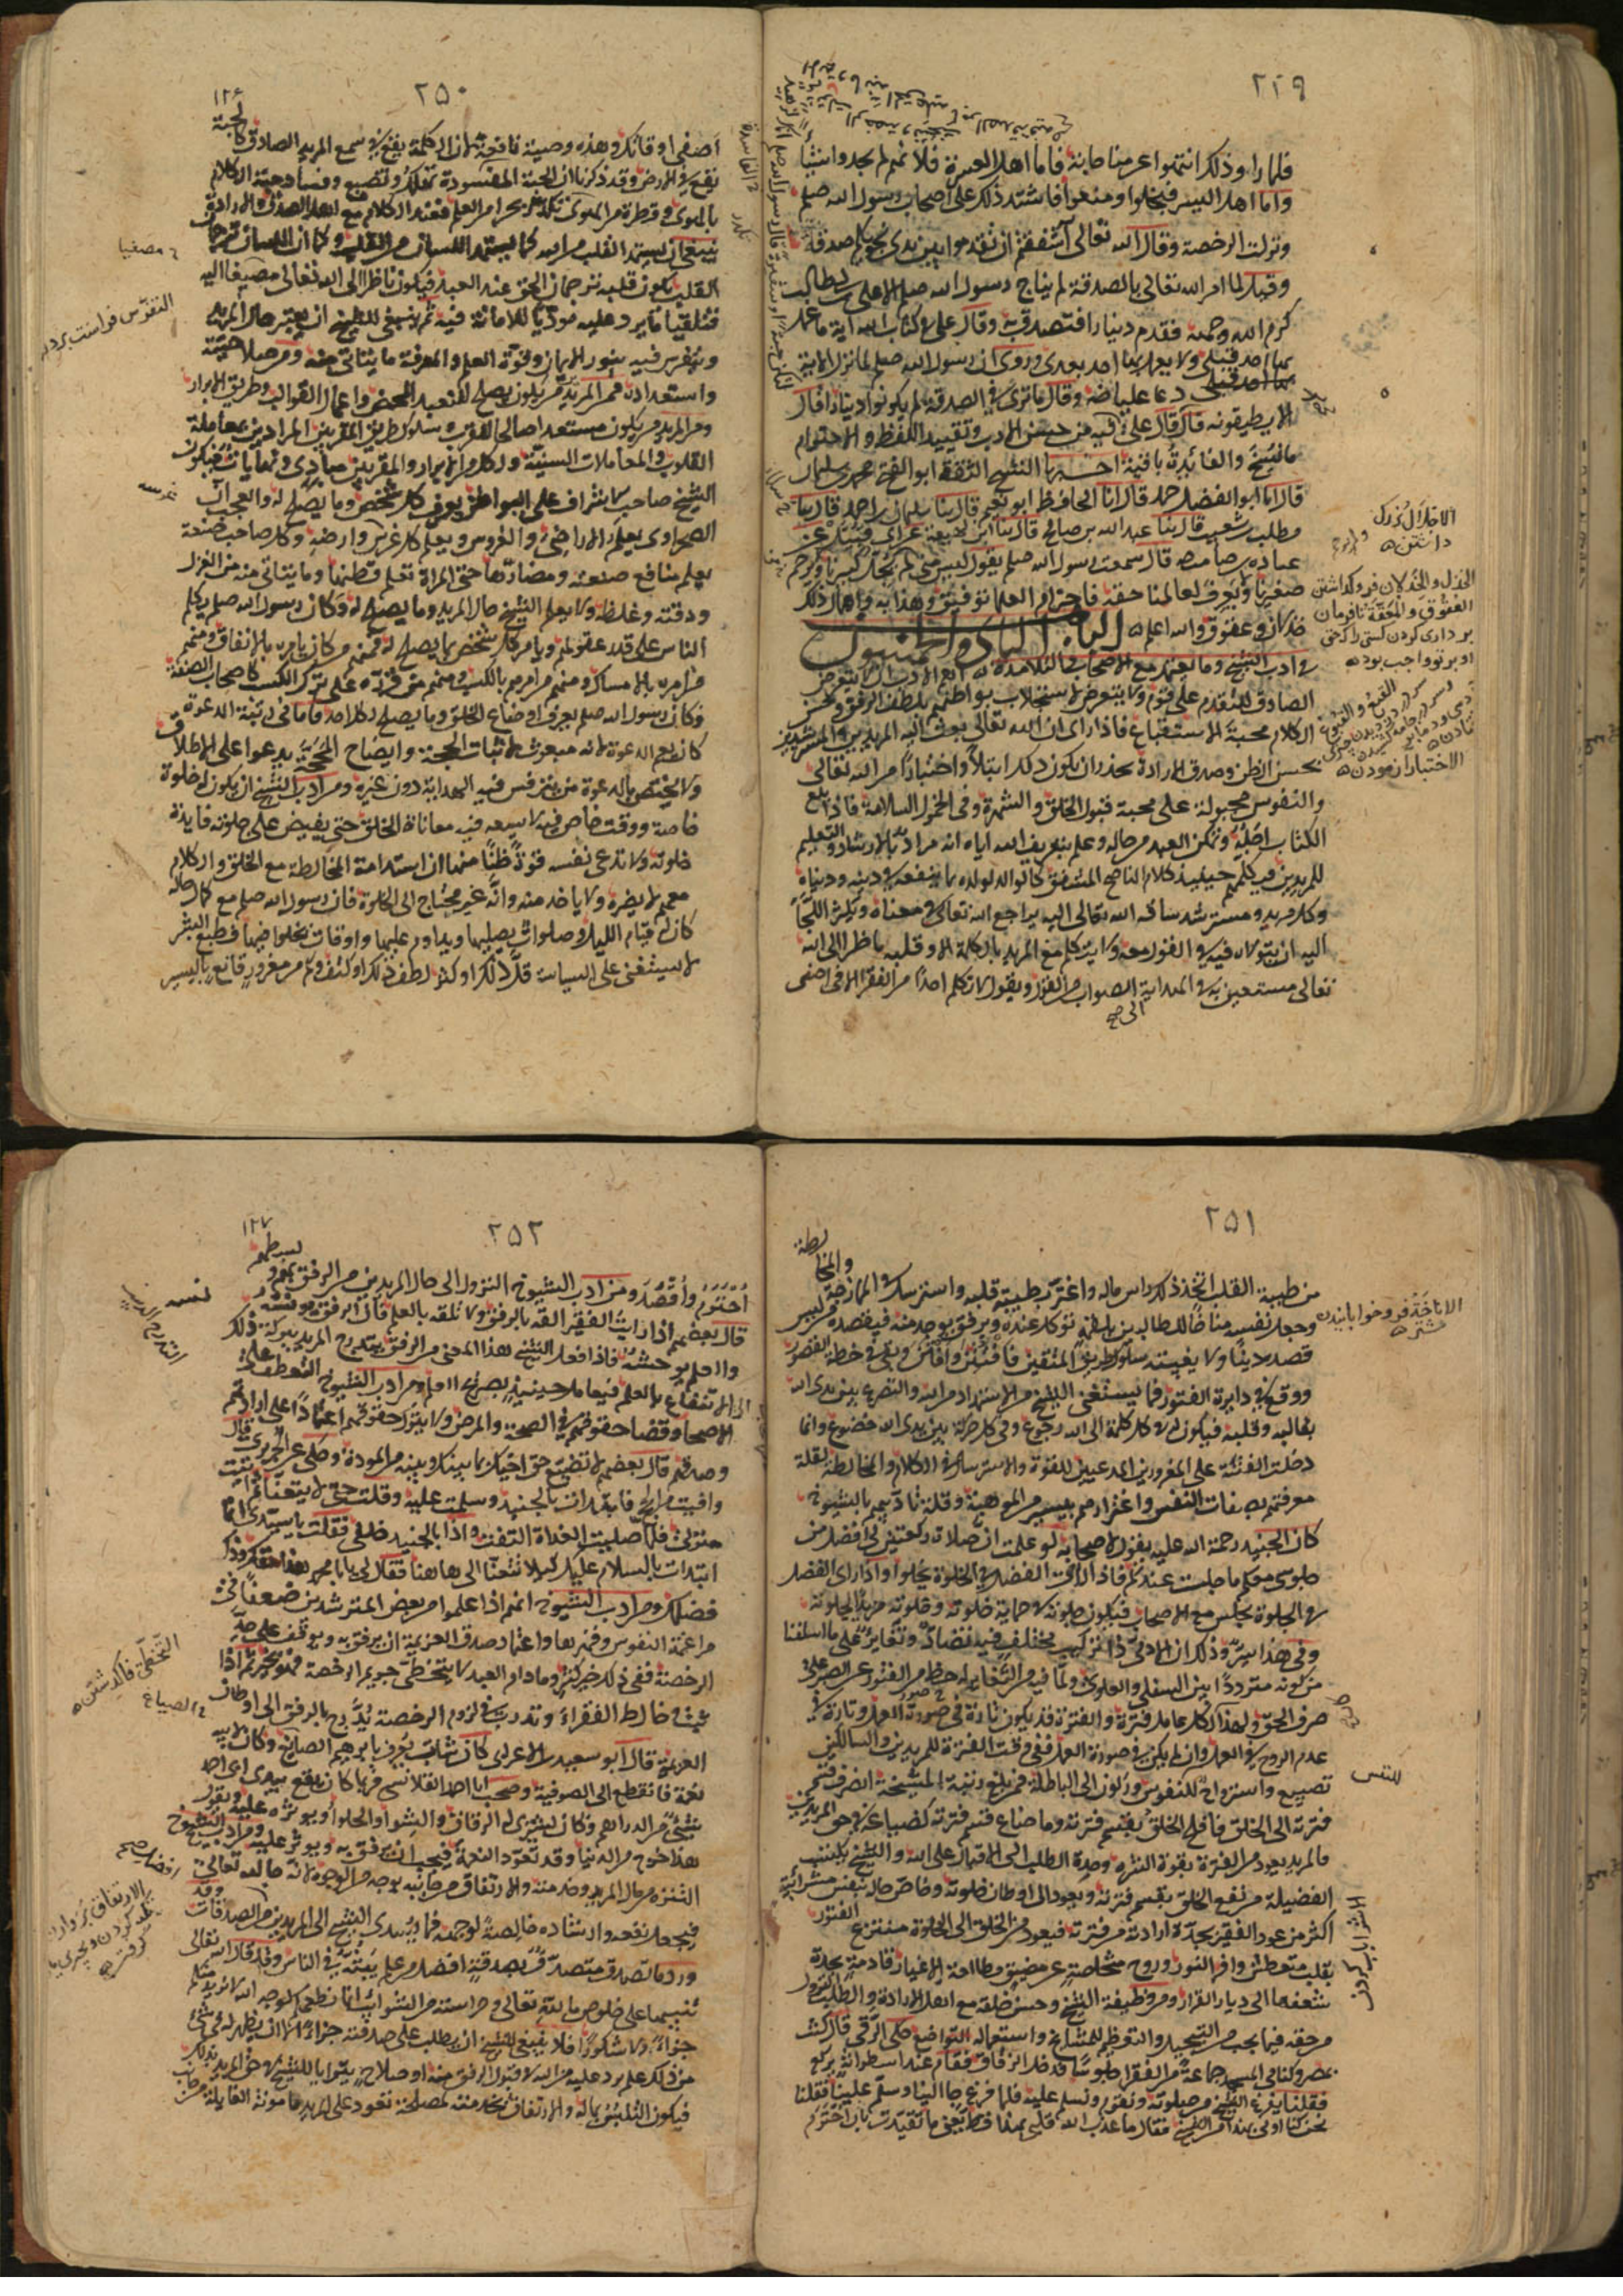 ٢٤٩
فلما راوا ذلك انتهوا عن مناجاته فاما اهل العسرة فلانهم لم يجدوا شيئا
واما اهل اليسر فبخلوا ومنعوا فاشتد ذلك على اصحاب رسول الله صلعم
ونزلت الرخصة وقال الله تعالى أأشفقتم ان تقدموا بين يدى نجويكم صدقة
وقيل لما امر الله تعالى بالصدقة لم يناج رسول الله صلعم الا على بن ابى طالب
كرم الله وجهه فقدم دينارا فتصدق به وقال على فى كتاب الله آية ما عمل
بها احد قبلى ولا يعمل بها احد بعدى وروى ان رسول الله صلعم لما نزلت الآية
دعا عليا رضه وقال ما ترى فى الصدقة كم يكون أدينارا قال
لا يطيقونه قال على
ما نسخ والفائدة باقية اخبرنا الشيخ الثقة ابو الفتح محمد بن سليمان
قال انا ابو الفضل حمد قال انا الحافظ ابو نعيم قال ثنا سليمان بن احمد قال ثنا
مطلب بن شعيب قال ثنا عبد الله بن صالح قال ثنا ابن لهيعة عن ابى قبيل عن
عبادة بن صامت قال سمعت رسول الله صلعم يقول ليس منا من لم يجل كبيرنا ويرحم
صغيرنا ويعرف لعالمنا حقه فاحترام العلما توفيق وهداية واهمال ذلك
خذلان وعقوق والله اعلم الباب الثانى والخمسون
فى ادب الشيخ وما يعتمده مع الاصحاب والتلامذة اهم الادب ان لا يتعرض
الصادق للتقدم على قوم ولا يتعرض لاستجلاب بواطنهم بلطف الرفق وحسن
الكلام محبة للاستتباع فاذا راى ان الله تعالى يبعث اليه المريدين والمسترشدين
بحسن الظن وصدق الارادة يحذر ان يكون ذلك ابتلاء واختبارا من الله تعالى
والنفوس مجبولة على محبة قبول الخلق والشهرة وفى الخمول السلامة فاذا بلغ
الكتاب اجله وتمكن العبد من حاله وعلم بتعريف الله اياه انه مراد بالارشاد والتعليم
للمريدين فيكلمهم حينئذ كلام الناصح المشفق كالوالد لولده بما ينفعه فى دينه ودنياه
وكل مريد ومسترشد ساقه الله تعالى اليه يراجع الله تعالى فى معناه ويكثر اللجأ
اليه ان يتولاه فيه وفى القول معه ولا يتكلم مع المريد بالكلمة الا وقلبه ناظر الى الله
تعالى مستعين به فى الهداية للصواب من القول ويقول لا تكلم احدا من الفقرا الا فى اصفى
٢٥٠
١٢٤
اصفى اوقاتك وهذه وصية نافعة لان الكلمة يقع فى سمع المريد الصادق كالحبة
تقع فى الارض وقد ذكرنا ان الحبة الفاسدة تهلك وتضيع وفساد حبة الكلام
بالهوى وقطرة من الهوى تكدر بحرا من العلم فعند الكلام مع اهل الصدق والارادة
ينبغى ان يستمد القلب من الله كما يستمد اللسان من القلب وكما ان اللسان ترجمان
القلب يكون قلبه ترجمان الحق عند العبد فيكون ناظرا الى الله تعالى مصغيا اليه
متلقيا ما يرد عليه موديا للامانة فيه ثم ينبغى للشيخ ان يعتبر حال المريد
ويتفرس فيه بنور الايمان وقوة العلم والمعرفة ما يتاتى منه ومن صلاحيته
واستعداده فمن المريدين من يكون يصلح للتعبد المحض واعمال القوالب وطريق الابرار
ومن المريدين من يكون مستعدا صالحا للقرب وسلوك طريق المقربين المرادين بمعاملة
القلوب والمعاملات السنية ولكل من الابرار والمقربين مبادى ونهايات فيكون
الشيخ صاحب الاشراف على البواطن يعرف كل شخص وما يصلح له والعجب ان
الصحراوى يعلم الاراضى والغروس ويعلم كل غرس وارضه وكل صاحب صنعة
يعلم منافع صنعته ومضارها حتى المراة تعلم قطنها وما يتاتى منه من الغزل
ودقته وغلظه ولا يعلم الشيخ حال المريد وما يصلح له وكان رسول الله صلعم يكلم
الناس على قدر عقولهم ويامر كل شخص بما يصلح له فمنهم من كان يامره بالانفاق ومنهم
من امره بالامساك ومنهم من امره بالكسب ومنهم من قرره على ترك الكسب كاصحاب الصفة
فكان رسول الله صلعم يعرف اوضاع الخلق وما يصلح لكل احد فاما فى رتبة الدعوة
كان يعم الدعوة لانه مبعوث لاثبات الحجة وايضاح المحجة يدعوا على الاطلاق
ولا يخصص بالدعوة من يتفرس فيه الهداية دون غيره ومن ادب الشيخ ان يكون له خلوة
خاصة ووقت خاص فيه لا يسعه فيه معاناة الخلق حتى يفيض على جلوته فايدة
خلوته ولا تدعى نفسه قوة ظنا منها ان استدامة المخالطة مع الخلق والكلام
معهم لا يضره ولا ياخذ منه وانه غير محتاج الى الخلوة فان رسول الله صلعم مع كمال حاله
كان له قيام الليل وصلوات يصليها ويداوم عليها واوقات يخلوا فيها فطبع البشر
لا يستغنى عن السياسة قل ذلك او كثر لطف ذلك او كثف وكم من مغرور قانع باليسير
مصغيا
التفرس فراست بردن
٢٥١
من طيبة القلب اتخذ ذلك راس ماله واغتر بطيبة قلبه واسترسل فى الممازجة والمخالطة
وجعل نفسه مناخا للبطالين بلقمة توكل عنده وبرفق يوجد منه فيقصده من ليس
قصده الدين ولا بغيته سلوك طريق المتقين فافتتن وافتن وبقى فى خطة القصور
ووقع فى دايرة الفتور فما يستغنى الشيخ من الاستمداد من الله والتضرع بين يدى الله
بقالبه وقلبه فيكون له فى كل كلمة الى الله رجوع وفى كل حركة بين يدى الله خضوع وانما
دخلت الفتنة على المغرورين المدعيين للقوة والاسترسال فى الكلام والمخالطة لقلة
معرفتهم بصفات النفس واغترارهم بيسير من الموهبة وقلة تادبهم بالشيوخ
كان الجنيد رحمة الله عليه يقول لاصحابه لو علمت ان صلاة ركعتين لى افضل من
جلوسى معكم ما جلست عندكم فاذا راى الفضل فى الخلوة يخلوا واذا راى الفضل
فى الجلوة يجلس مع الاصحاب فيكون جلوته فى حماية خلوته وخلوته مزيد لجلوته
وفى هذا سر وذلك ان الادمى ذا تركيب مختلف فيه تضاد وتغاير على ما اسلفنا
من كونه مترددا بين السفلى والعلوى ولما فيه من التغاير له حظ من الفتور عن الصبر على
صرف الحق ولهذا كان لكل عامل فترة والفترة قد يكون تارة فى صورة العمل وتارة فى
عدم الروح فى العمل وان لم يكن فى صورة العمل ففى وقت الفترة للمريدين والسالكين
تضييع واسترواح للنفوس وركون الى البطالة فمن بلغ رتبة المشيخة انصرف قسم
فترته الى الخلق فافلح الخلق بقسم فترته وما ضاع قسم فترته كضياعه فى حق المريدين
فالمريد يعود من الفترة بقوة الشره وحدة الطلب الى الاقبال على الله والشيخ يكتسب
الفضيلة من نفع الخلق بقسم فترته ويعود الى اوطان خلوته وخاص حاله بنفس مشرائبة
اكثر من عود الفقير بحدة ارادته من فترته فيعود من الخلق الى الخلوة منتزع الفتور
بقلب متعطش وافر النور وروح متخلصة عن مضيق مطالعة الاغيار قادمة بحدة
شغفها الى ديار القرار ومن وظيفة الشيخ وحسن خلقه مع اهل الارادة والطلب النزول
من حقه فيما يجب من التبجيل والتعظيم للمشايخ واستعماله التواضع حكى الرقى قال كنت
بمصر وكنا فى المسجد جماعة من الفقرا جلوسا فدخل الزقاق فقام عند اسطوانة يركع
فقلنا يفرغ الشيخ من صلوته ونقوم ونسلم عليه فلما فرغ جا الينا وسلم علينا فقلنا
نحن كنا اولى بهذا من الشيخ فقال ما عذب الله قلبى بهذا قط يعنى ما تقيدت بان احترم
٢٥٢
١٢٧
احترم واقصد ومن ادب الشيوخ النزول الى حال المريدين من الرفق بهم وبسطهم
قال بعضهم اذا رايت الفقير القه بالرفق ولا تلقه بالعلم فان الرفق يونسه
والعلم يوحشه فاذا فعل الشيخ هذا المعنى من الرفق يتدرج المريد ببركة ذلك
الى الانتفاع بالعلم فيعامل حينئذ بصريح العلم ومن ادب الشيوخ التعطف على
الاصحاب وقضا حقوقهم فى الصحة والمرض ولا يترك حقوقهم اعتمادا على ارادتهم
وصدقهم قال بعضهم لا تضيع حق اخيك بما بينك وبينه من المودة وحكى عن الجريرى قال
وافيت من الحج فابتدات بالجنيد وسلمت عليه وقلت حتى لا يتعنا ثم اتيت
منزلى فلما صليت الغداة التفت واذا بالجنيد خلفى فقلت يا سيدى انما
ابتدات بالسلام عليك لكيلا تتعنا الى هاهنا فقال لى يابا محمد هذا حقك وذاك
فضلك ومن ادب الشيوخ انهم اذا علموا من بعض المسترشدين ضعفا فى
مراغمة النفوس وقهرها واعتماد صدق العزيمة ان يرفق به ويوقف على حد
الرخصة ففى ذلك خير كثير وما دام العبد لا يتخطى حريم الرخصة فهو خير ثم اذا
ثبت وخالط الفقراء وتدرب فى لزوم الرخصة يدرج بالرفق الى اوطان
العزيمة قال ابو سعيد بن الاعرابى كان شاب يعرف بابرهيم الصايغ وكان لابيه
نعمة فانقطع الى الصوفية وصحب ابا احمد القلانسى فربما كان يقع بيدى ابى احمد
شىء من الدراهم وكان يشترى له الرقاق والشواء والحلواء ويوثره عليه ويقول
هذا خرج من الدنيا وقد تعود النعمة فيجب ان نرفق به ويوثر عليه ومن ادب الشيوخ
التنزه من مال المريد وخدمته والارتفاق من جانبه بوجه من الوجوه لانه جا لله تعالى
فيجعل نفعه وارشاده خالصة لوجهه فما يسدى الشيخ الى المريدين من الصدقات وقد
ورد ما تصدق متصدق بصدقة افضل من علم يبثه فى الناس وقد قال الله تعالى
تنبيها على خلوص ما لله تعالى وحراسته من الشوائب انما نطعمكم لوجه الله لا نريد منكم
جزاء ولا شكورا فلا ينبغى للشيخ ان يطلب على صدقته جزاء الا ان يظهر له فى شىء
من ذلك علم يرد عليه من الله فى قبول الرفق منه او صلاح يتراايا للشيخ فى حق المريد بذلك
فيكون التلبس بماله والارتفاق بخدمته لمصلحة تعود على المريد مامونة الغايلة من جانب